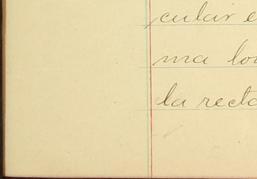 cular e
ma lo
la recta